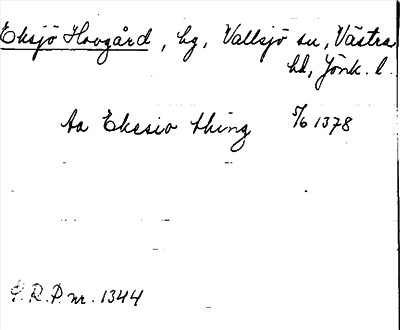 Eksjö Hovgård, hg, Vallsjö sn, Västra
hd, Jönk. l.
ta Ekesio thing 5/6 1378
S.R.P. nr. 1344